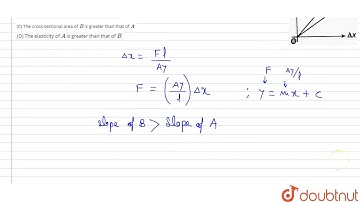 (C) The cross-sectional area of B is greater than that of A
(D) The elasticity of A is greater than that of B
Δx
Δx = Fl / Ay
F = (Ay / l) Δx
F Ay/l
; y = mx + c
slope of B > slope of A
doubtnut